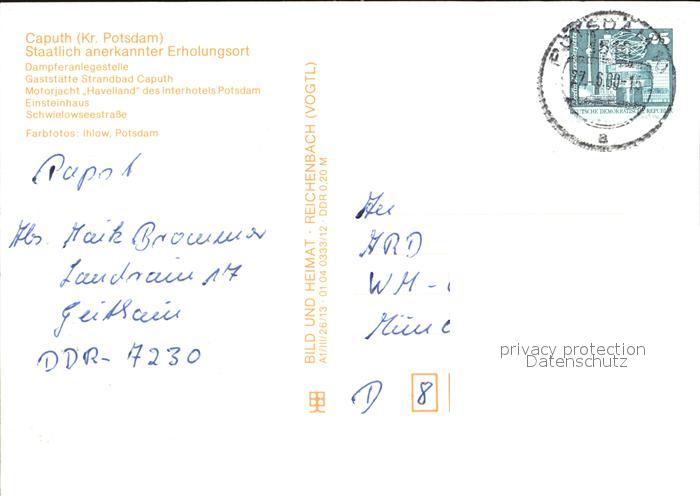 Caputh (Kr. Potsdam)
Staatlich anerkannter Erholungsort
Dampferanlegestelle
Gaststätte Strandbad Caputh
Motorjacht „Havelland" des Interhotels Potsdam
Einsteinhaus
Schwielowseestraße
Farbfotos: Ihlow, Potsdam
Papst
Abs. Maik Brommer
Landrain 17
Geithain
DDR-7230
BILD UND HEIMAT · REICHENBACH (VOGTL)
A1/III/26/13 · 01 04 0333/12 · DDR 0,20 M
An
ARD
WM-
Münc
D 8
POTSDAM
25
a
DEUTSCHE DEMOKRATISCHE REPUBLIK
privacy protection
Datenschutz